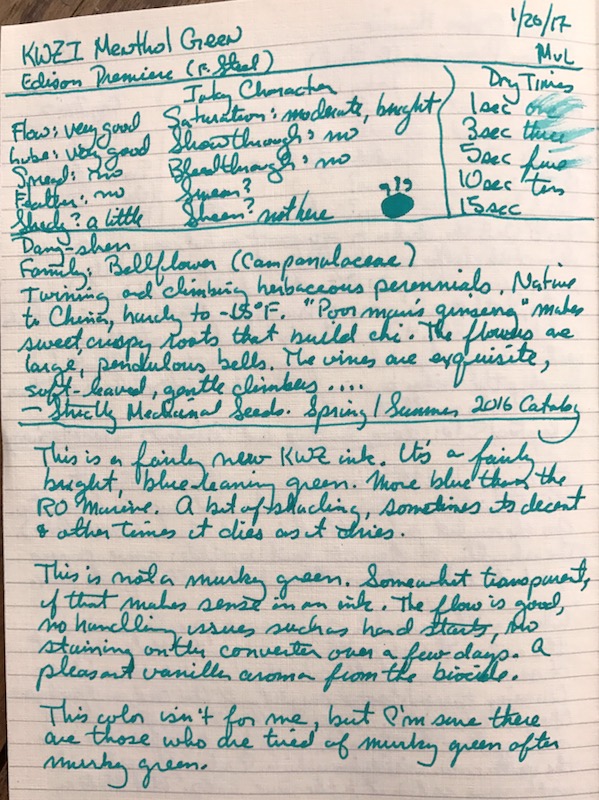 1/26/17
KWZI Menthol Green
MvL
Edison Premiere (F. Steel)
Inky Character
Dry Times
Flow: very good
Saturation: moderate, bright
1 sec one
Lube: very good
Showthrough: no
3 sec three
Spread: no
Bleedthrough: no
5 sec five
Feather: no
Smear?
10 sec ten
Shady? a little
Sheen? not here
15 sec
Dang-shen
Family: Bellflower (Campanulaceae)
Twining and climbing herbaceous perennials. Native
to China, hardy to -15°F. "Poor man's ginseng" makes
sweet, crispy roots that build chi. The flowers are
large, pendulous bells. The vines are exquisite,
soft-leaved, gentle climbers ....
- Strictly Medicinal Seeds. Spring/Summer 2016 Catalog
This is a fairly new KWZ ink. It's a fairly
bright, blue-leaning green. More blue than the
RO Marine. A bit of shading, sometimes its decent
& other times it dies as it dries.
This is not a murky green. Somewhat transparent,
if that makes sense in an ink. The flow is good,
no handling issues such as hard starts, no
staining on the converter over a few days. A
pleasant vanilla aroma from the biocide.
This color isn't for me, but I'm sure there
are those who are tired of murky green after
murky green.